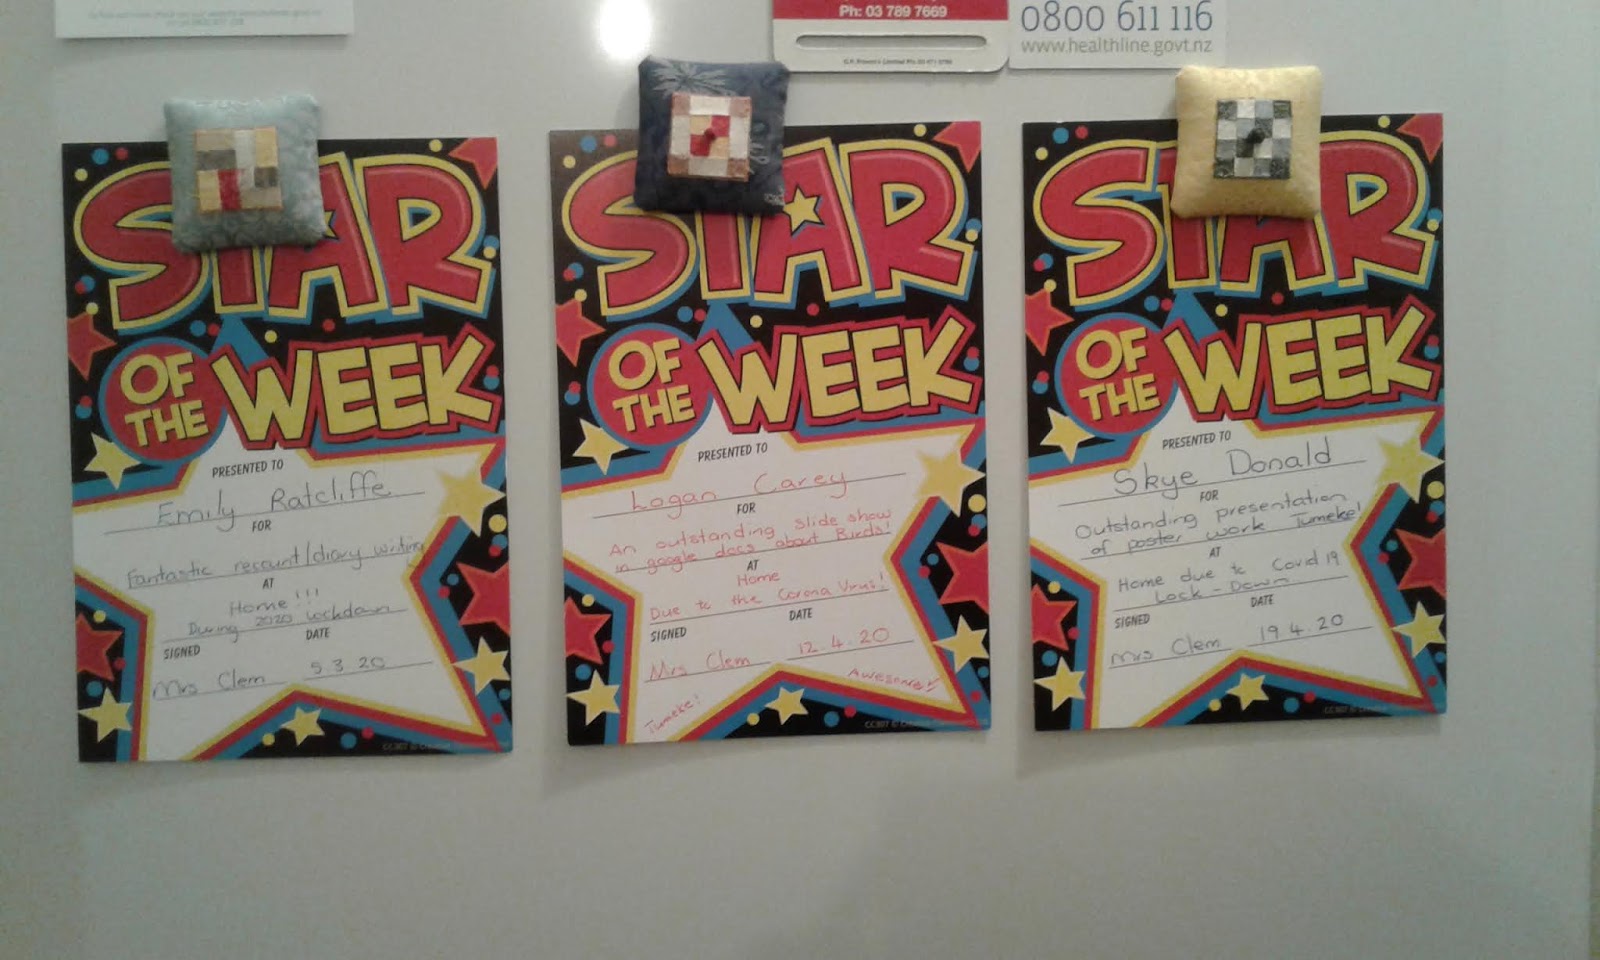 Ph: 03 789 7669
0800 611 116
www.healthline.govt.nz
STAR
OF THE WEEK
PRESENTED TO
Emily Ratcliffe
FOR
Fantastic recount/diary writing
AT
Home!!!
During 2020 lockdown
SIGNED
DATE
Mrs Clem
5.3.20
STAR
OF THE WEEK
PRESENTED TO
Logan Carey
FOR
An outstanding slide show
in google docs about Birds!
AT
Home
Due to the Corona Virus!
SIGNED
DATE
Mrs Clem
12.4.20
Awesome!!
Tumeke!
STAR
OF THE WEEK
PRESENTED TO
Skye Donald
FOR
Outstanding presentation
of poster work Tumeke!
AT
Home due to Covid 19
Lock-Down
SIGNED
DATE
Mrs Clem
19.4.20